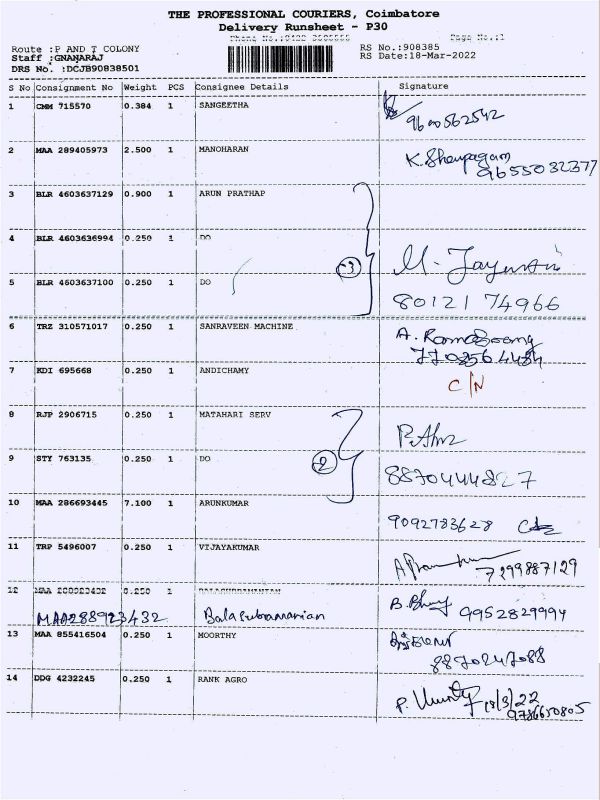 THE PROFESSIONAL COURIERS, Coimbatore
Delivery Runsheet - P30
Page No.:1
Route :P AND T COLONY
RS No.:908385
Staff :GNANARAJ
RS Date:18-Mar-2022
DRS No. :DCJB90838501
S No Consignment No Weight PCS Consignee Details Signature
1 CMM 715570 0.384 1 SANGEETHA
9600562542
2 MAA 289405973 2.500 1 MANOHARAN K. Shenpagam
9655032377
3 BLR 4603637129 0.900 1 ARUN PRATHAP
4 BLR 4603636994 0.250 1 DO
-3
5 BLR 4603637100 0.250 1 DO
80121 74966
6 TRZ 310571017 0.250 1 SANRAVEEN MACHINE
7 KDI 695668 0.250 1 ANDICHAMY C/N
8 RJP 2906715 0.250 1 MATAHARI SERV
9 STY 763135 0.250 1 DO -2
8870444827
10 MAA 286693445 7.100 1 ARUNKUMAR
9092783628
11 TRP 5496007 0.250 1 VIJAYAKUMAR
7299887129
12 MAA 288923432 0.250 1 BALASUBRAMANIAN
MAA288923432 Balasubramanian 9952829994
13 MAA 855416504 0.250 1 MOORTHY
8870247088
14 DDG 4232245 0.250 1 RANK AGRO
18/3/22
9786650805